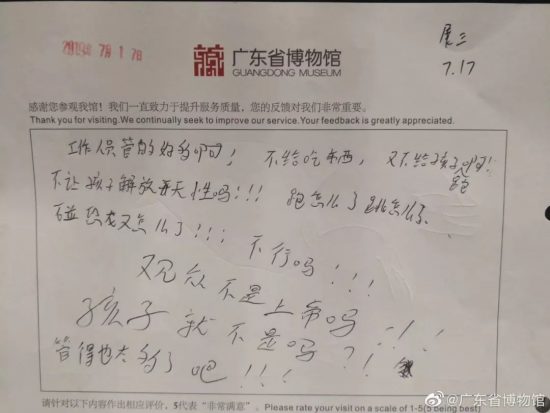 2019年7月17日
广东省博物馆
GUANGDONG MUSEUM
展三
7.17
感谢您参观我馆！我们一直致力于提升服务质量，您的反馈对我们非常重要。
Thank you for visiting.We continually seek to improve our service.Your feedback is greatly appreciated.
工作人员管的好多啊！不给吃东西，又不给孩子跑啊！
不让孩子解放天性吗！！！跑怎么了跳怎么了
碰恐龙又怎么了！！！
不行吗！！！
观众不是上帝吗！！
孩子就不是吗？！！
管得也太多了吧！！！
请针对以下内容作出相应评价，5代表“非常满意”。Please rate your visit on a scale of 1-5(5 being best)
@广东省博物馆